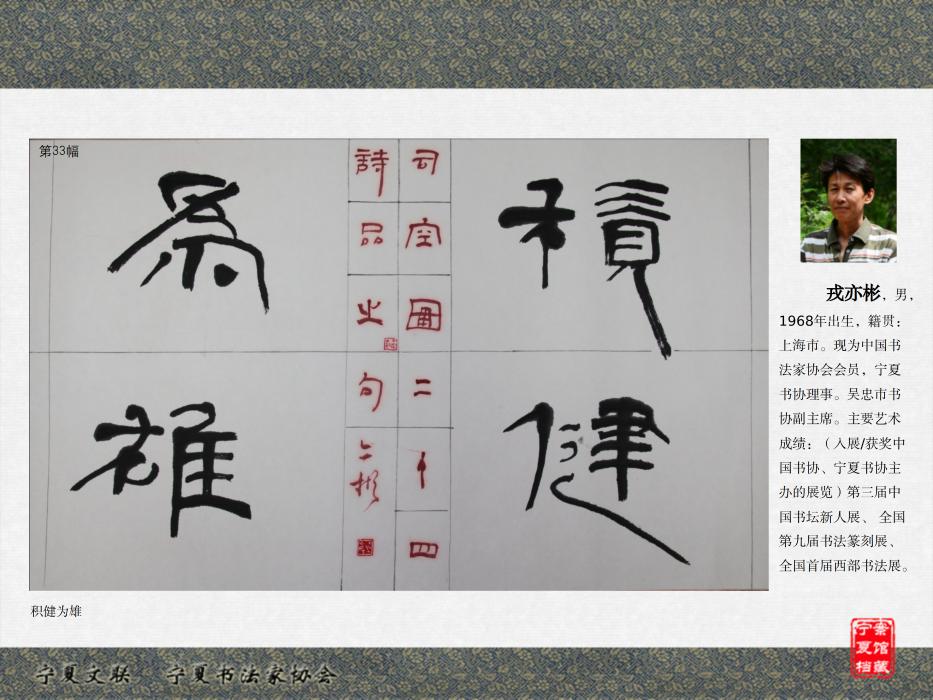 第33幅
積
健
為
雄
司空圖二十四
詩品之句
亦彬
戎亦彬，男，
1968年出生，籍贯：
上海市。现为中国书
法家协会会员，宁夏
书协理事。吴忠市书
协副主席。主要艺术
成绩：（入展/获奖中
国书协、宁夏书协主
办的展览）第三届中
国书坛新人展、 全国
第九届书法篆刻展、
全国首届西部书法展。
积健为雄
宁夏文联 宁夏书法家协会
宁夏档案馆藏